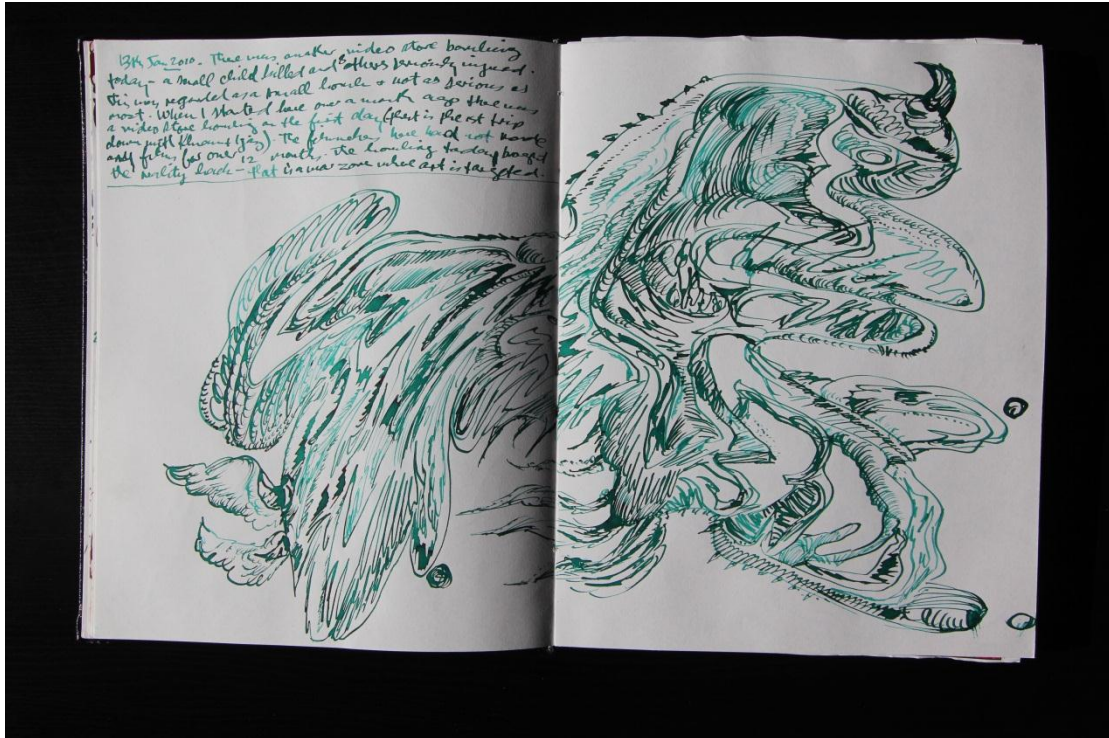 13th Jan 2010. There was another video store bombing
today - a small child killed and 8 others seriously injured.
This was regarded as a small bomb & not as serious as
most. When I started here over a month ago there was
a video store bombing on the first day (that is the 1st trip
down with). The filmmakers here had not made
any films for over 12 months. The bombing today
the reality back - that is a war zone where art is targeted.